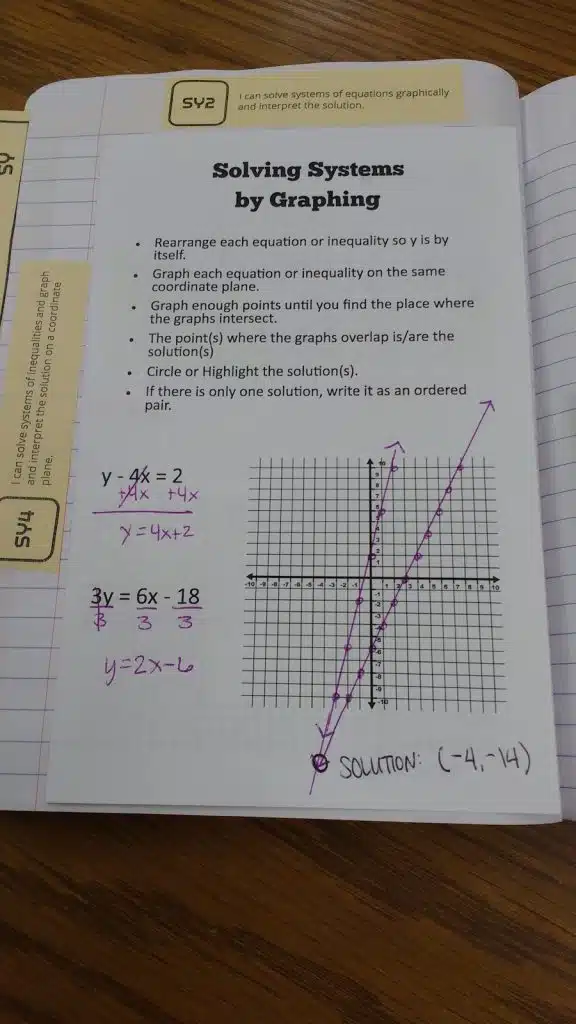 SY2
I can solve systems of equations graphically
and interpret the solution.
SY
Solving Systems
by Graphing
• Rearrange each equation or inequality so y is by
itself.
• Graph each equation or inequality on the same
coordinate plane.
• Graph enough points until you find the place where
the graphs intersect.
• The point(s) where the graphs overlap is/are the
solution(s)
• Circle or Highlight the solution(s).
• If there is only one solution, write it as an ordered
pair.
SY4
I can solve systems of inequalities and graph
and interpret the solution on a coordinate
plane.
y - 4x = 2
+4x +4x
y=4x+2
3y = 6x - 18
3 3 3
y=2x-6
-10 -9 -8 -7 -6 -5 -4 -3 -2 -1 1 2 3 4 5 6 7 8 9 10
SOLUTION: (-4,-14)